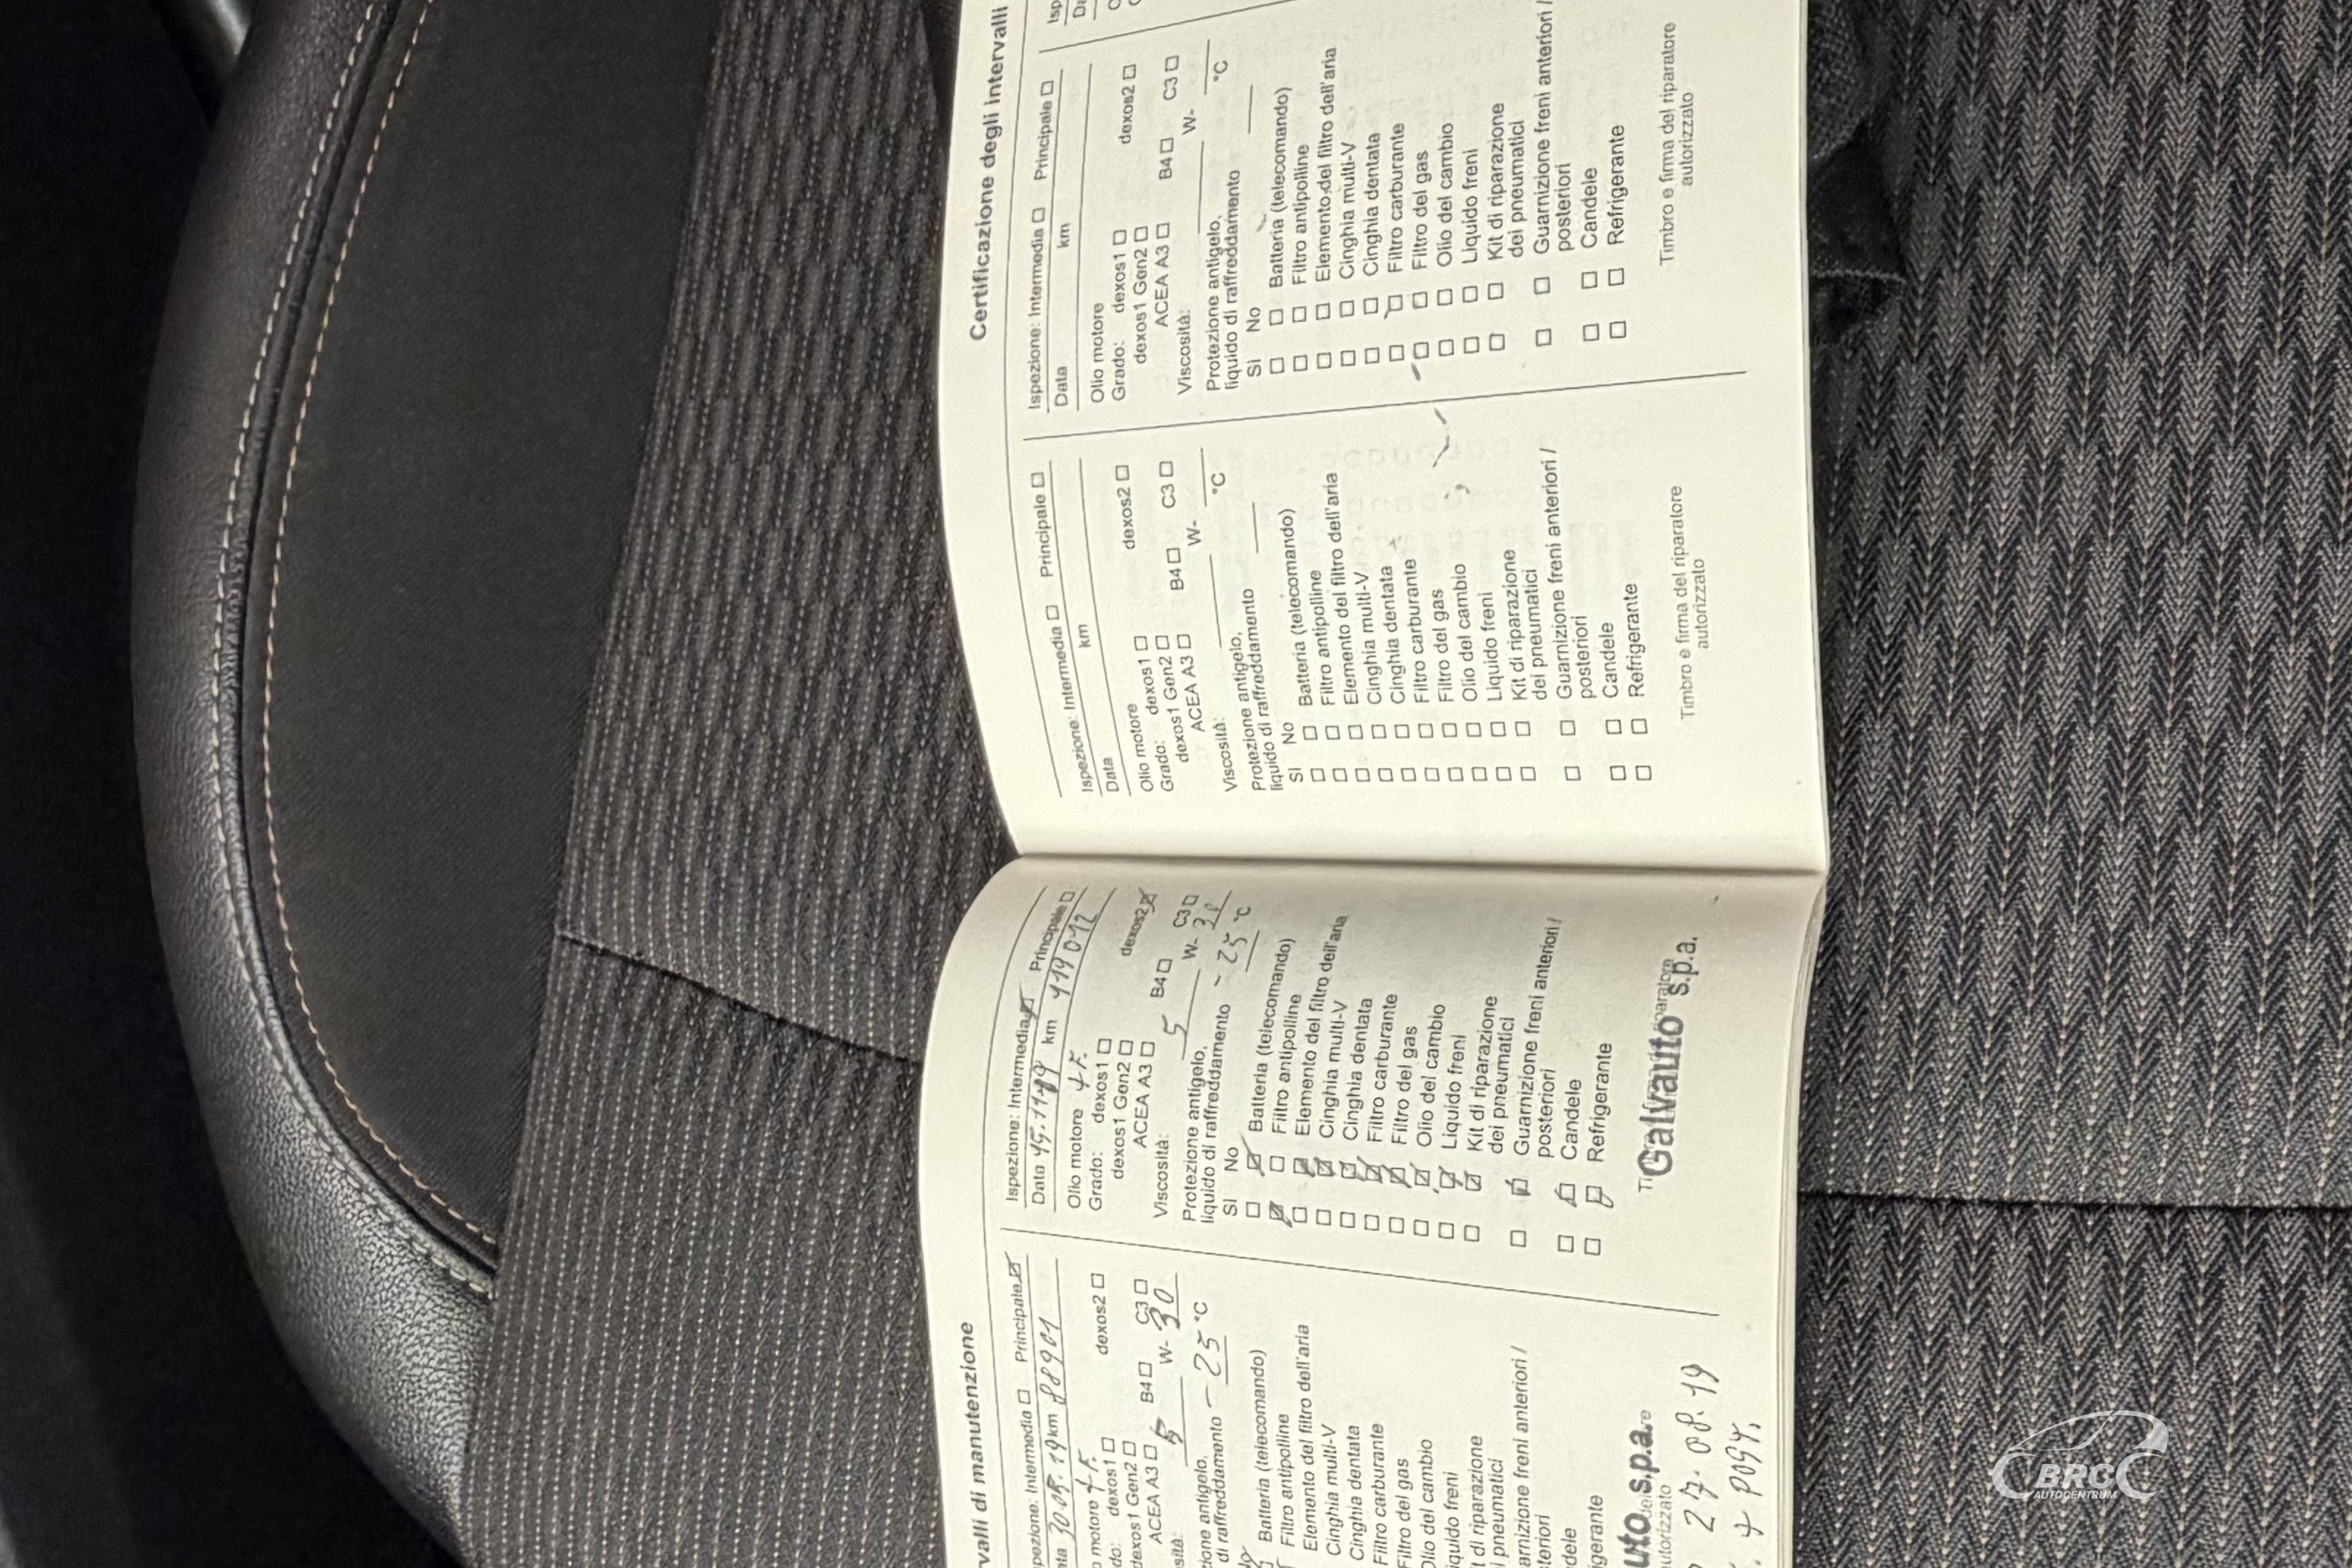 Certificazione degli intervalli
valli di manutenzione
pezione: Intermedia Principale
ta 30.05.19 km 88901
motore + F.
do: dexos1 dexos2
dexos1 Gen2
ACEA A3 B4 C3
sità: 5 W- 30
ione antigelo,
di raffreddamento -25 °C
No
Batteria (telecomando)
Filtro antipolline
Elemento del filtro dell'aria
Cinghia multi-V
Cinghia dentata
Filtro carburante
Filtro del gas
Olio del cambio
iquido freni
t di riparazione
i pneumatici
arnizione freni anteriori /
steriori
dele
igerante
uto s.p.a.
utorizzato
27.08.19
Ispezione: Intermedia Principale
Data 15.11.19 km 119012
Olio motore + F.
Grado: dexos1 dexos2
dexos1 Gen2
ACEA A3 B4 C3
Viscosità: 5 W- 30
Protezione antigelo,
liquido di raffreddamento -25 °C
Sì No
Batteria (telecomando)
Filtro antipolline
Elemento del filtro dell'aria
Cinghia multi-V
Cinghia dentata
Filtro carburante
Filtro del gas
Olio del cambio
Liquido freni
Kit di riparazione
dei pneumatici
Guarnizione freni anteriori /
posteriori
Candele
Refrigerante
Galvauto s.p.a.
Ispezione: Intermedia Principale
Data km
Olio motore
Grado: dexos1 dexos2
dexos1 Gen2
ACEA A3 B4 C3
Viscosità: W-
Protezione antigelo, °C
liquido di raffreddamento
Sì No
Batteria (telecomando)
Filtro antipolline
Elemento del filtro dell'aria
Cinghia multi-V
Cinghia dentata
Filtro carburante
Filtro del gas
Olio del cambio
Liquido freni
Kit di riparazione
dei pneumatici
Guarnizione freni anteriori /
posteriori
Candele
Refrigerante
Timbro e firma del riparatore
autorizzato
Ispezione: Intermedia Principale
Data km
Olio motore
Grado: dexos1 dexos2
dexos1 Gen2
ACEA A3 B4 C3
Viscosità: W-
Protezione antigelo, °C
liquido di raffreddamento
Sì No
Batteria (telecomando)
Filtro antipolline
Elemento del filtro dell'aria
Cinghia multi-V
Cinghia dentata
Filtro carburante
Filtro del gas
Olio del cambio
Liquido freni
Kit di riparazione
dei pneumatici
Guarnizione freni anteriori /
posteriori
Candele
Refrigerante
Timbro e firma del riparatore
autorizzato
BRC
AUTOCENTRUM